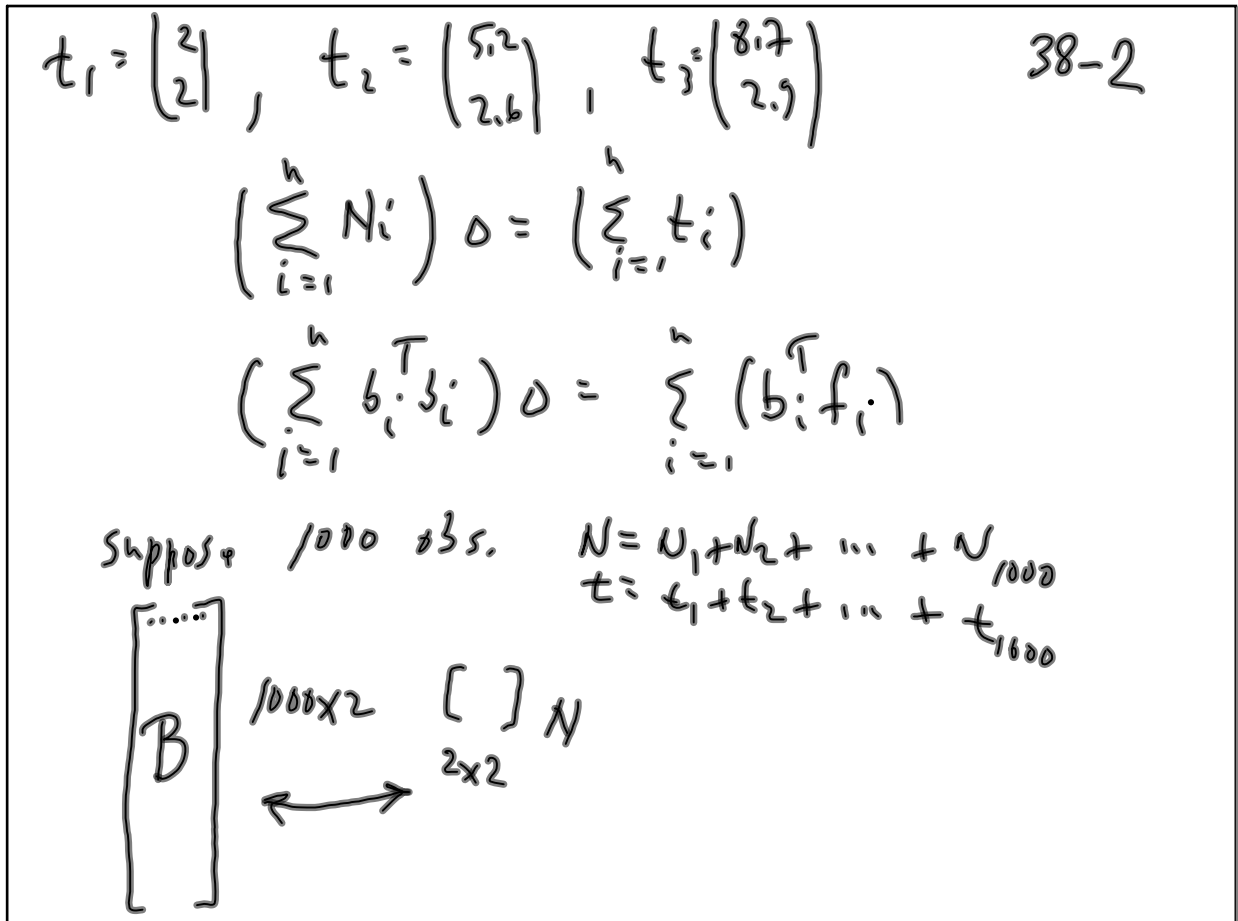 t₁ = (2 2), t₂ = (5.2 2.6), t₃ = (8.7 2.9) 38-2
(∑ᵢ₌₁ⁿ Nᵢ) Δ = (∑ᵢ₌₁ⁿ tᵢ)
(∑ᵢ₌₁ⁿ bᵢᵀ bᵢ) Δ = ∑ᵢ₌₁ⁿ (bᵢᵀ fᵢ)
Suppose 1000 obs. N = N₁ + N₂ + ... + N₁₀₀₀
t = t₁ + t₂ + ... + t₁₀₀₀
[....]
B 1000×2 [ ] N
2×2